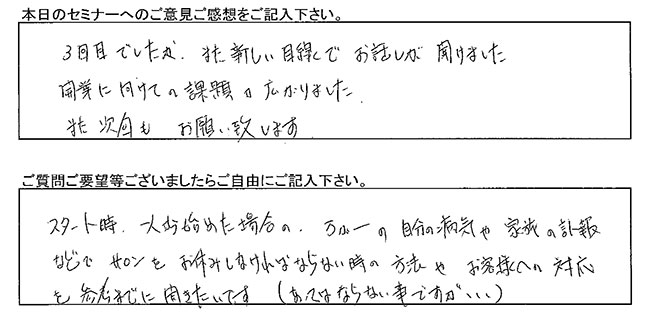 本日のセミナーへのご意見ご感想をご記入下さい。
3回目でしたが、また新しい目線でお話しが聞けました
開業に向けての課題が広がりました
また次回もお願い致します
ご質問ご要望等ございましたらご自由にご記入下さい。
スタート時、一人から始めた場合の、万が一の自分の病気や家族の訃報
などでサロンをお休みしなければならない時の方法やお客様への対応
を参考までに聞きたいです（あってはならない事ですが、、、）